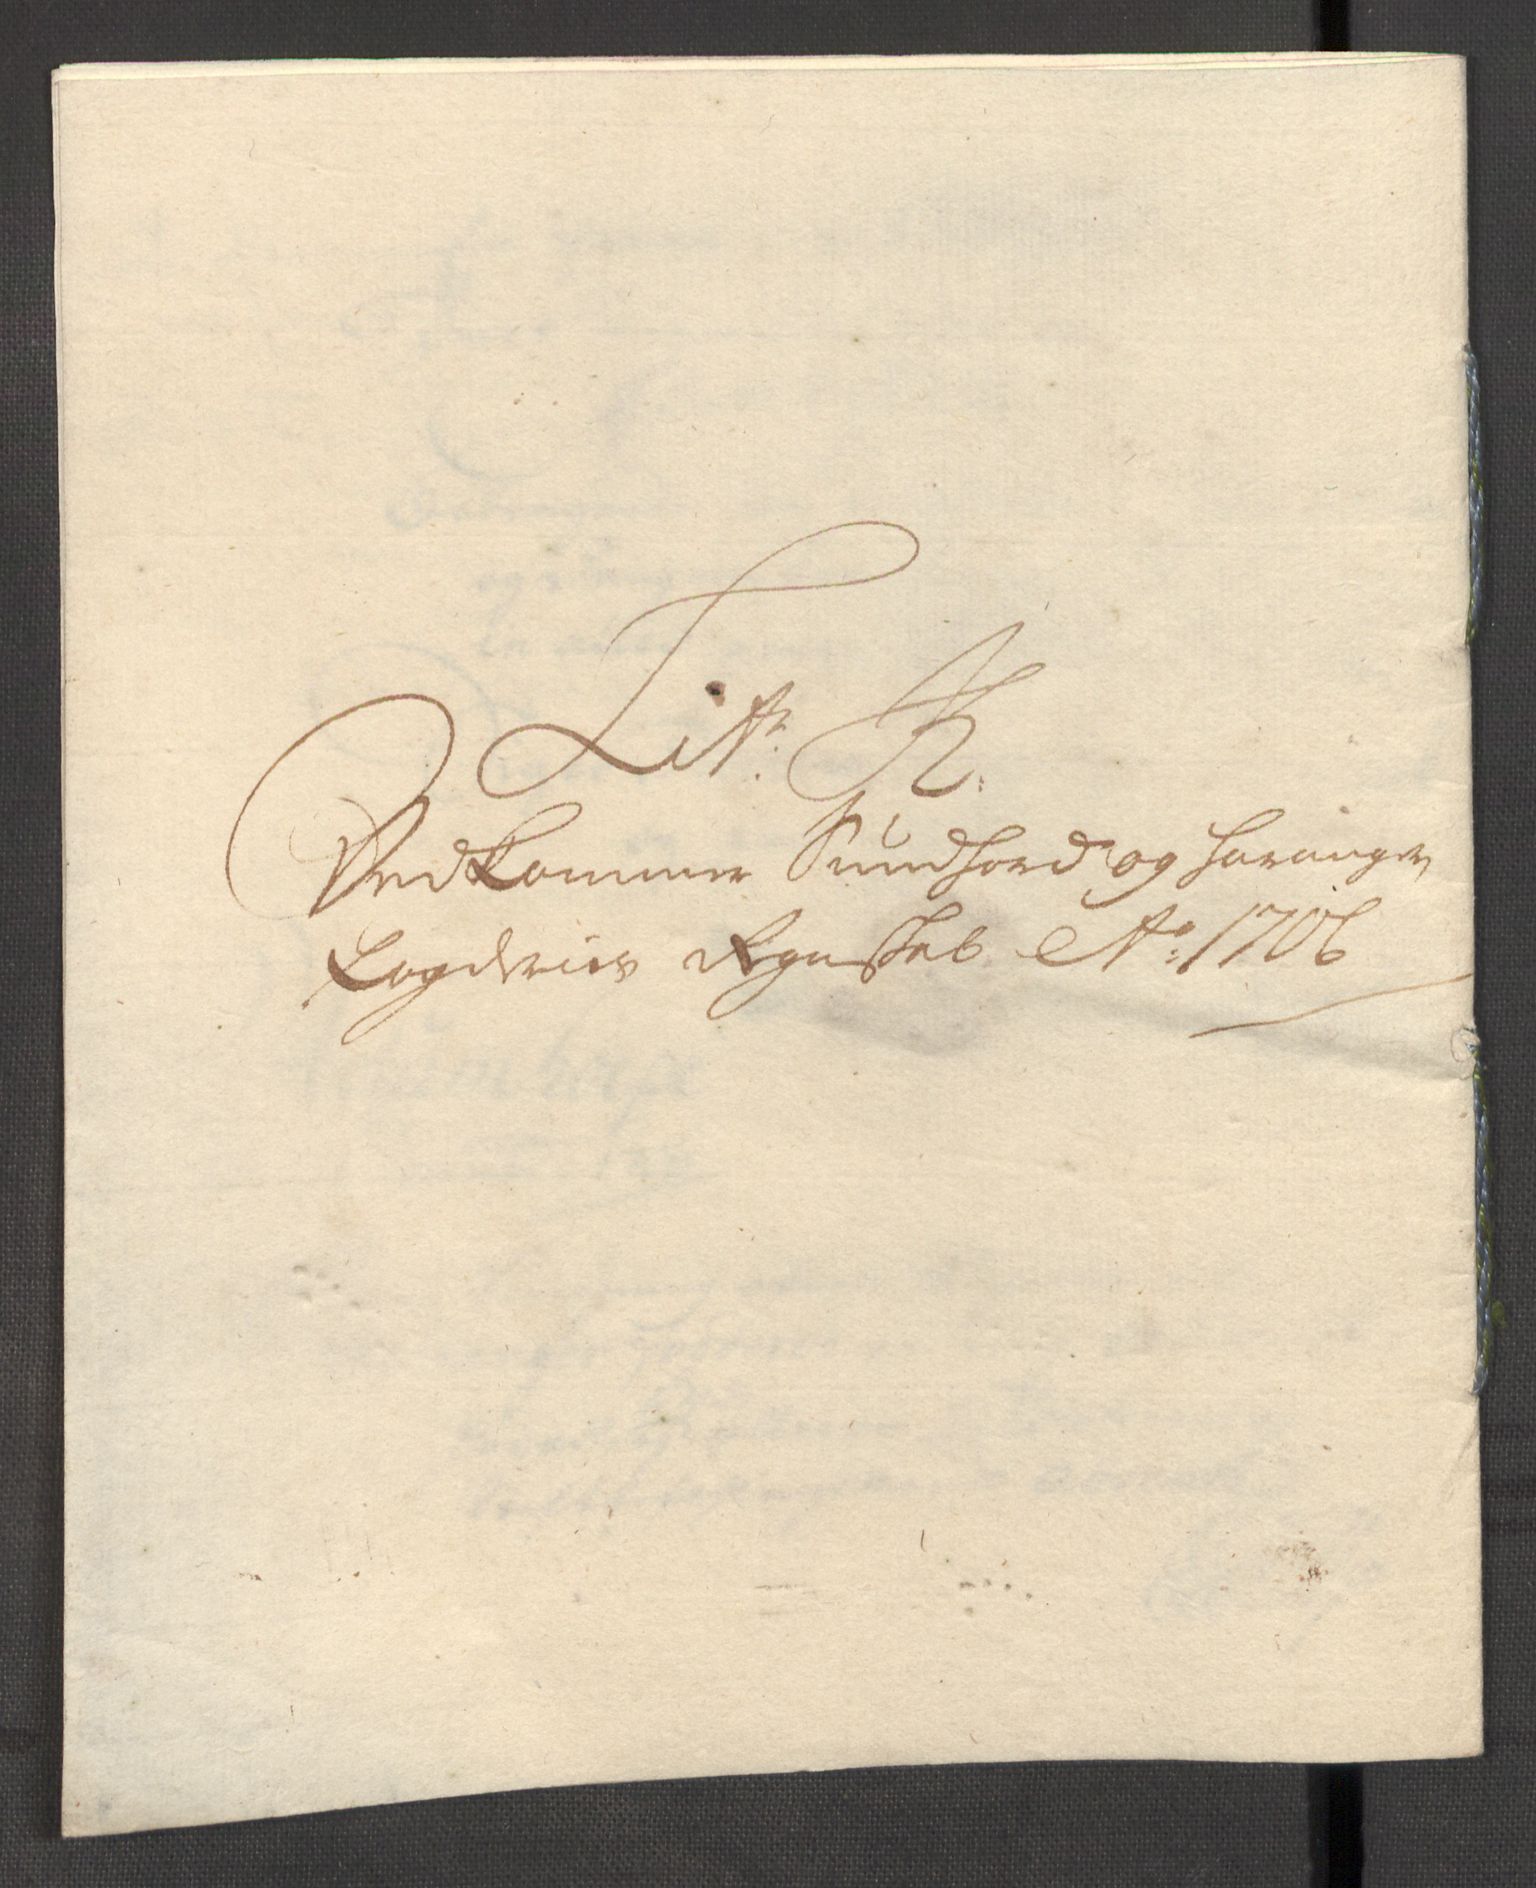 Litr. K:
Vedkommer Sundhord og Haranger
Fogderies Regnskab Ao: 1706